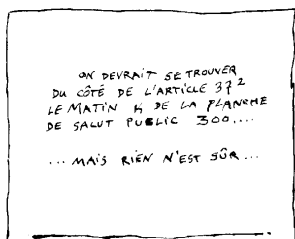 ON DEVRAIT SE TROUVER
DU CÔTÉ DE L'ARTICLE 37²
LE MATIN K DE LA PLANCHE
DE SALUT PUBLIC 300....
... MAIS RIEN N'EST SÛR...